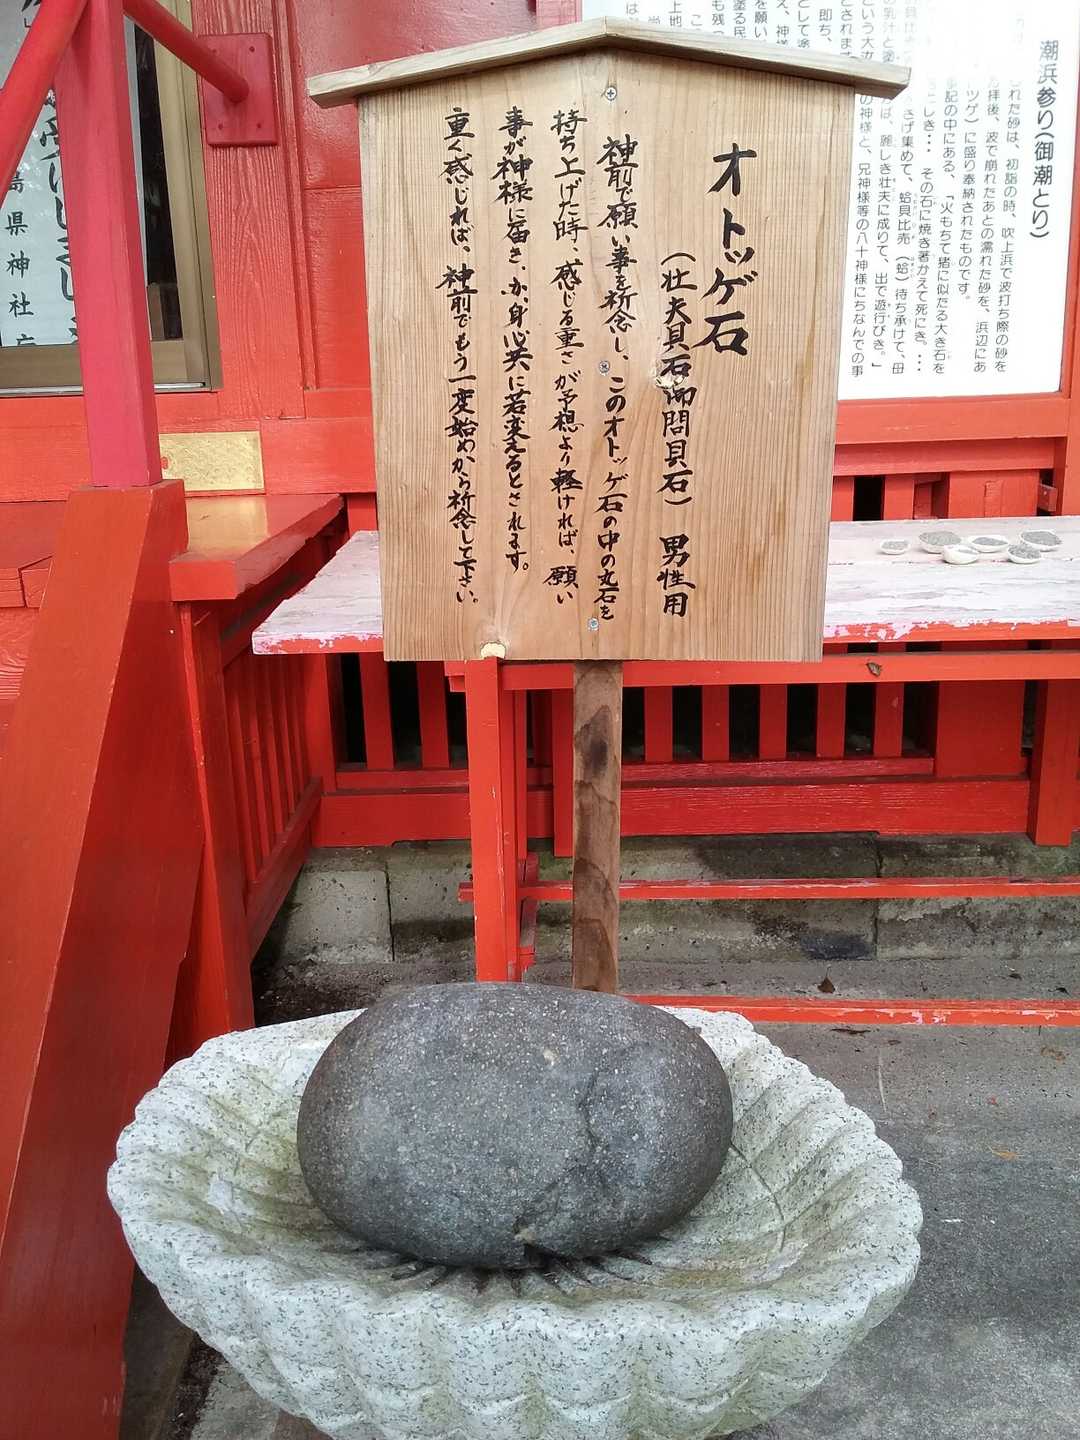 オトッゲ石
(壮夫貝石御問貝石) 男性用
神前で願い事を祈念し、このオトッゲ石の中の丸石を
持ち上げた時、感じる重さが予想より軽ければ、願い
事が神様に届き、か、身心共に若変えるとされます。
重く感じれば、神前でもう一度始めから祈念して下さい。
潮浜参り(御潮とり)
れた砂は、初詣の時、吹上浜で波打ち際の砂を
拝後、波で崩れたあとの濡れた砂を、浜辺にあ
ツゲ)に盛り奉納されたものです。
記の中にある、「火もちて猪に似たる大き石を
しき・・・その石に焼き著かえて死にき。・・・
さげ集めて、蛤貝比売(蛤)待ち承けて、母
の乳汁と塗
ば、麗しき壮夫に成りて、出で遊行びき。」
の神様と、兄神様等の八十神様にちなんでの事
とされます
即ち、
島県神社庁